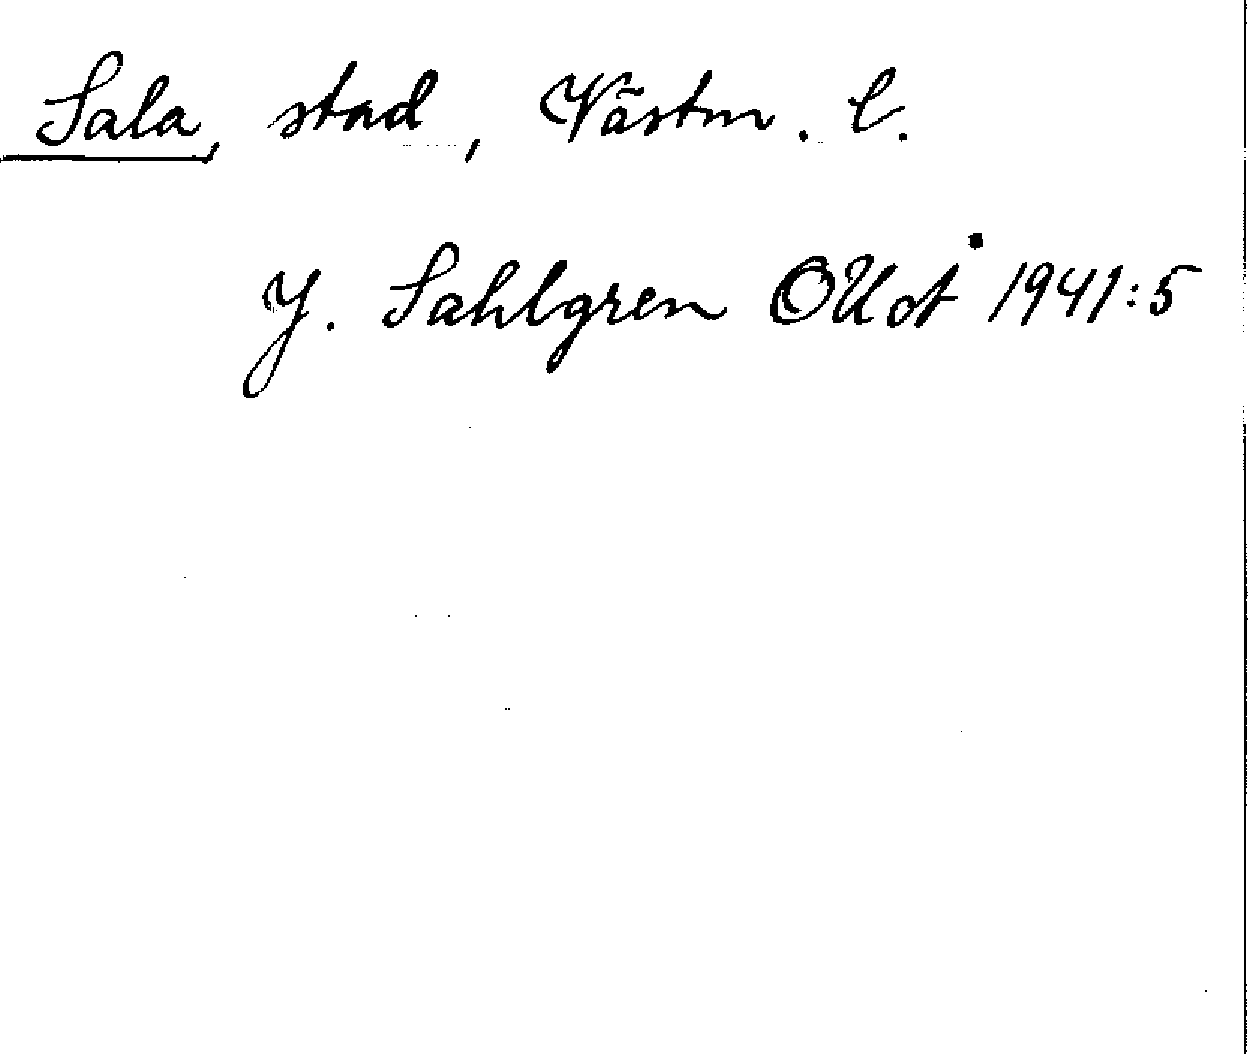 Sala, stad, Västm. l.
J. Sahlgren OUÅ 1941:5